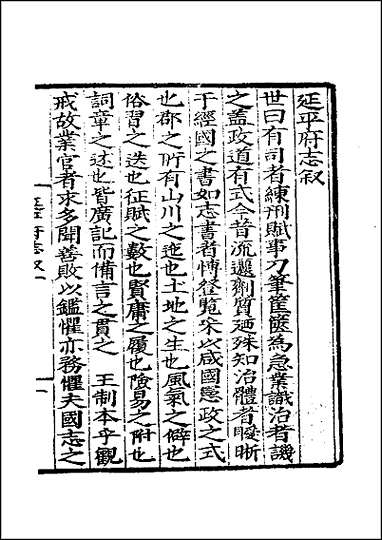 延平府志叙
世曰有司者練刑賦事刀筆筐篋為急業識治者譏
之盖政道有式今昔流邅劑質廼殊知治體者曖晰
于經國之書如志書者愽登覧采以咸國憲政之式
也郡之所有山川之迤也土地之生也風氣之僻也
俗習之迭也征賦之數也賢庸之履也險易之附也
詞章之述也皆廣記而備言之貫之 王制本乎觀
戒故業官者求多聞善敗以鑑懼亦務懼夫國志之
延平府志叙 一